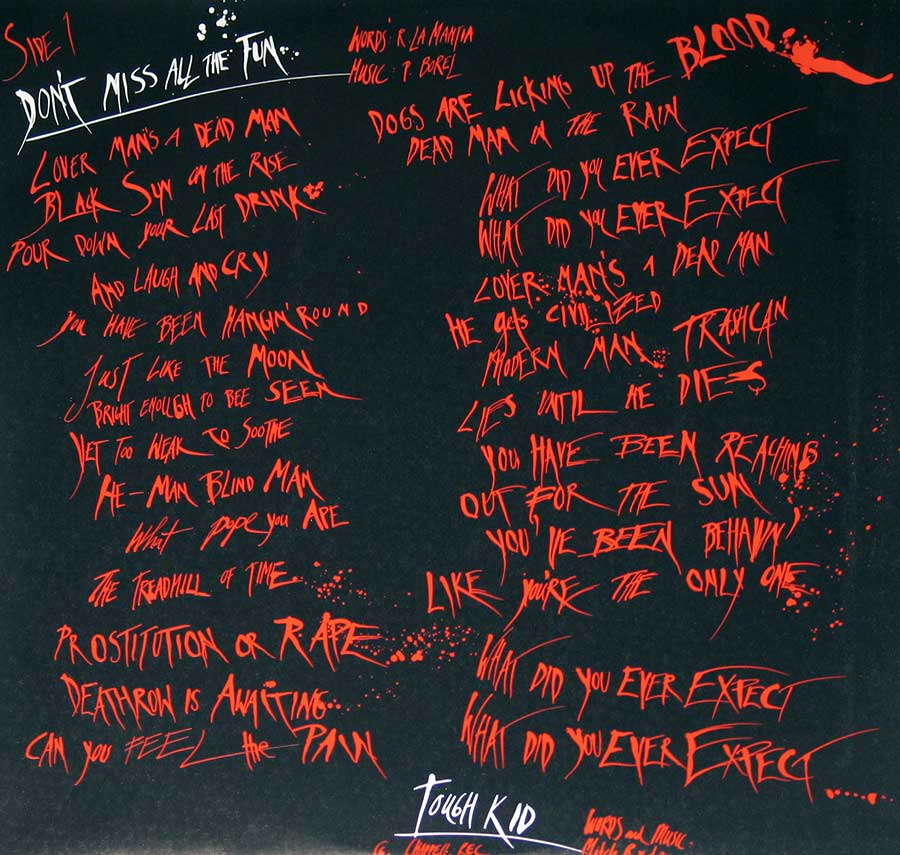 Side 1
DON'T MISS ALL THE FUN..
WORDS: R LA MANTIA
MUSIC: P. BOREL
LOVER MAN'S A DEAD MAN
BLACK SUN ON THE RISE
POUR DOWN YOUR LAST DRINK
AND LAUGH AND CRY
YOU HAVE BEEN HANGIN' ROUND
JUST LIKE THE MOON
BRIGHT ENOUGH TO BEE SEEN
YET TOO WEAK TO SOOTHE
HE-MAN BLIND MAN
What pope you APE
THE TREADMILL OF TIME.
PROSTITUTION OR RAPE
DEATHROW IS AWAITING..
CAN YOU FEEL the PAIN
DOGS ARE LICKING UP THE BLOOD
DEAD MAN IN THE RAIN
WHAT DID YOU EVER EXPECT
WHAT DID YOU EVER EXPECT
LOVER MAN'S A DEAD MAN
HE gets CIVILIZED
MODERN MAN TRASHCAN
LIES UNTIL HE DIES
YOU HAVE BEEN REACHING
OUT FOR THE SUN
YOU'VE BEEN BEHAVIN'
LIKE YOU'RE THE ONLY ONE
WHAT DID YOU EVER EXPECT
WHAT DID YOU EVER EXPECT......
TOUGH KID
WORDS and MUSIC:
CHAPPELL REC